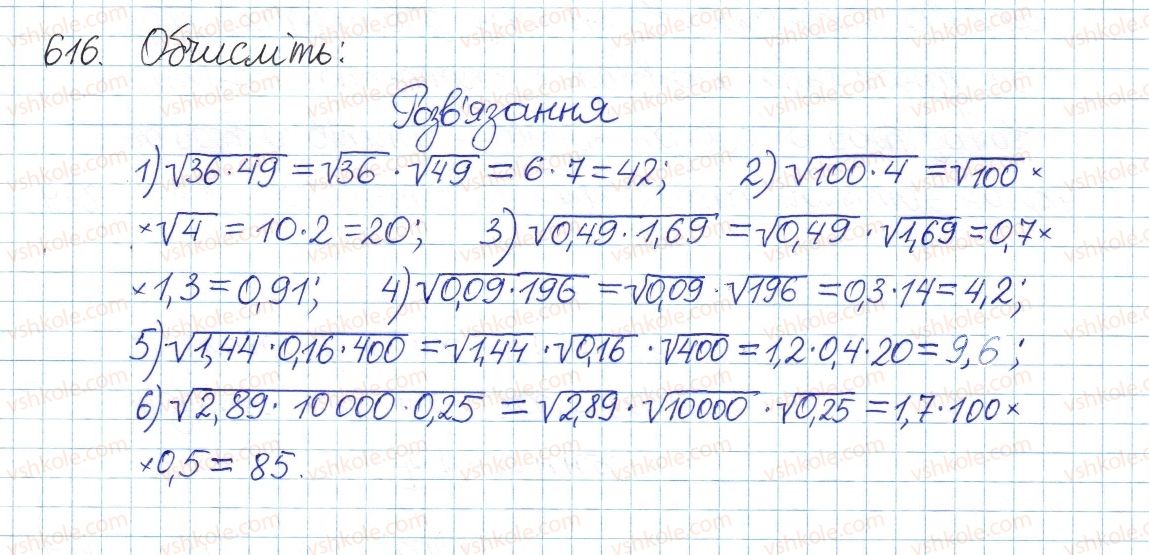 616. Обчисліть:
Розв'язання
1) √36·49 = √36 · √49 = 6·7=42; 2) √100·4 = √100 ×
×√4 = 10·2=20; 3) √0,49·1,69 = √0,49 · √1,69 = 0,7×
×1,3=0,91; 4) √0,09·196 = √0,09 · √196 = 0,3·14=4,2;
5) √1,44·0,16·400 = √1,44 · √0,16 · √400 = 1,2·0,4·20= 9,6;
6) √2,89·10000·0,25 = √2,89 · √10000 · √0,25 = 1,7·100×
×0,5= 85.